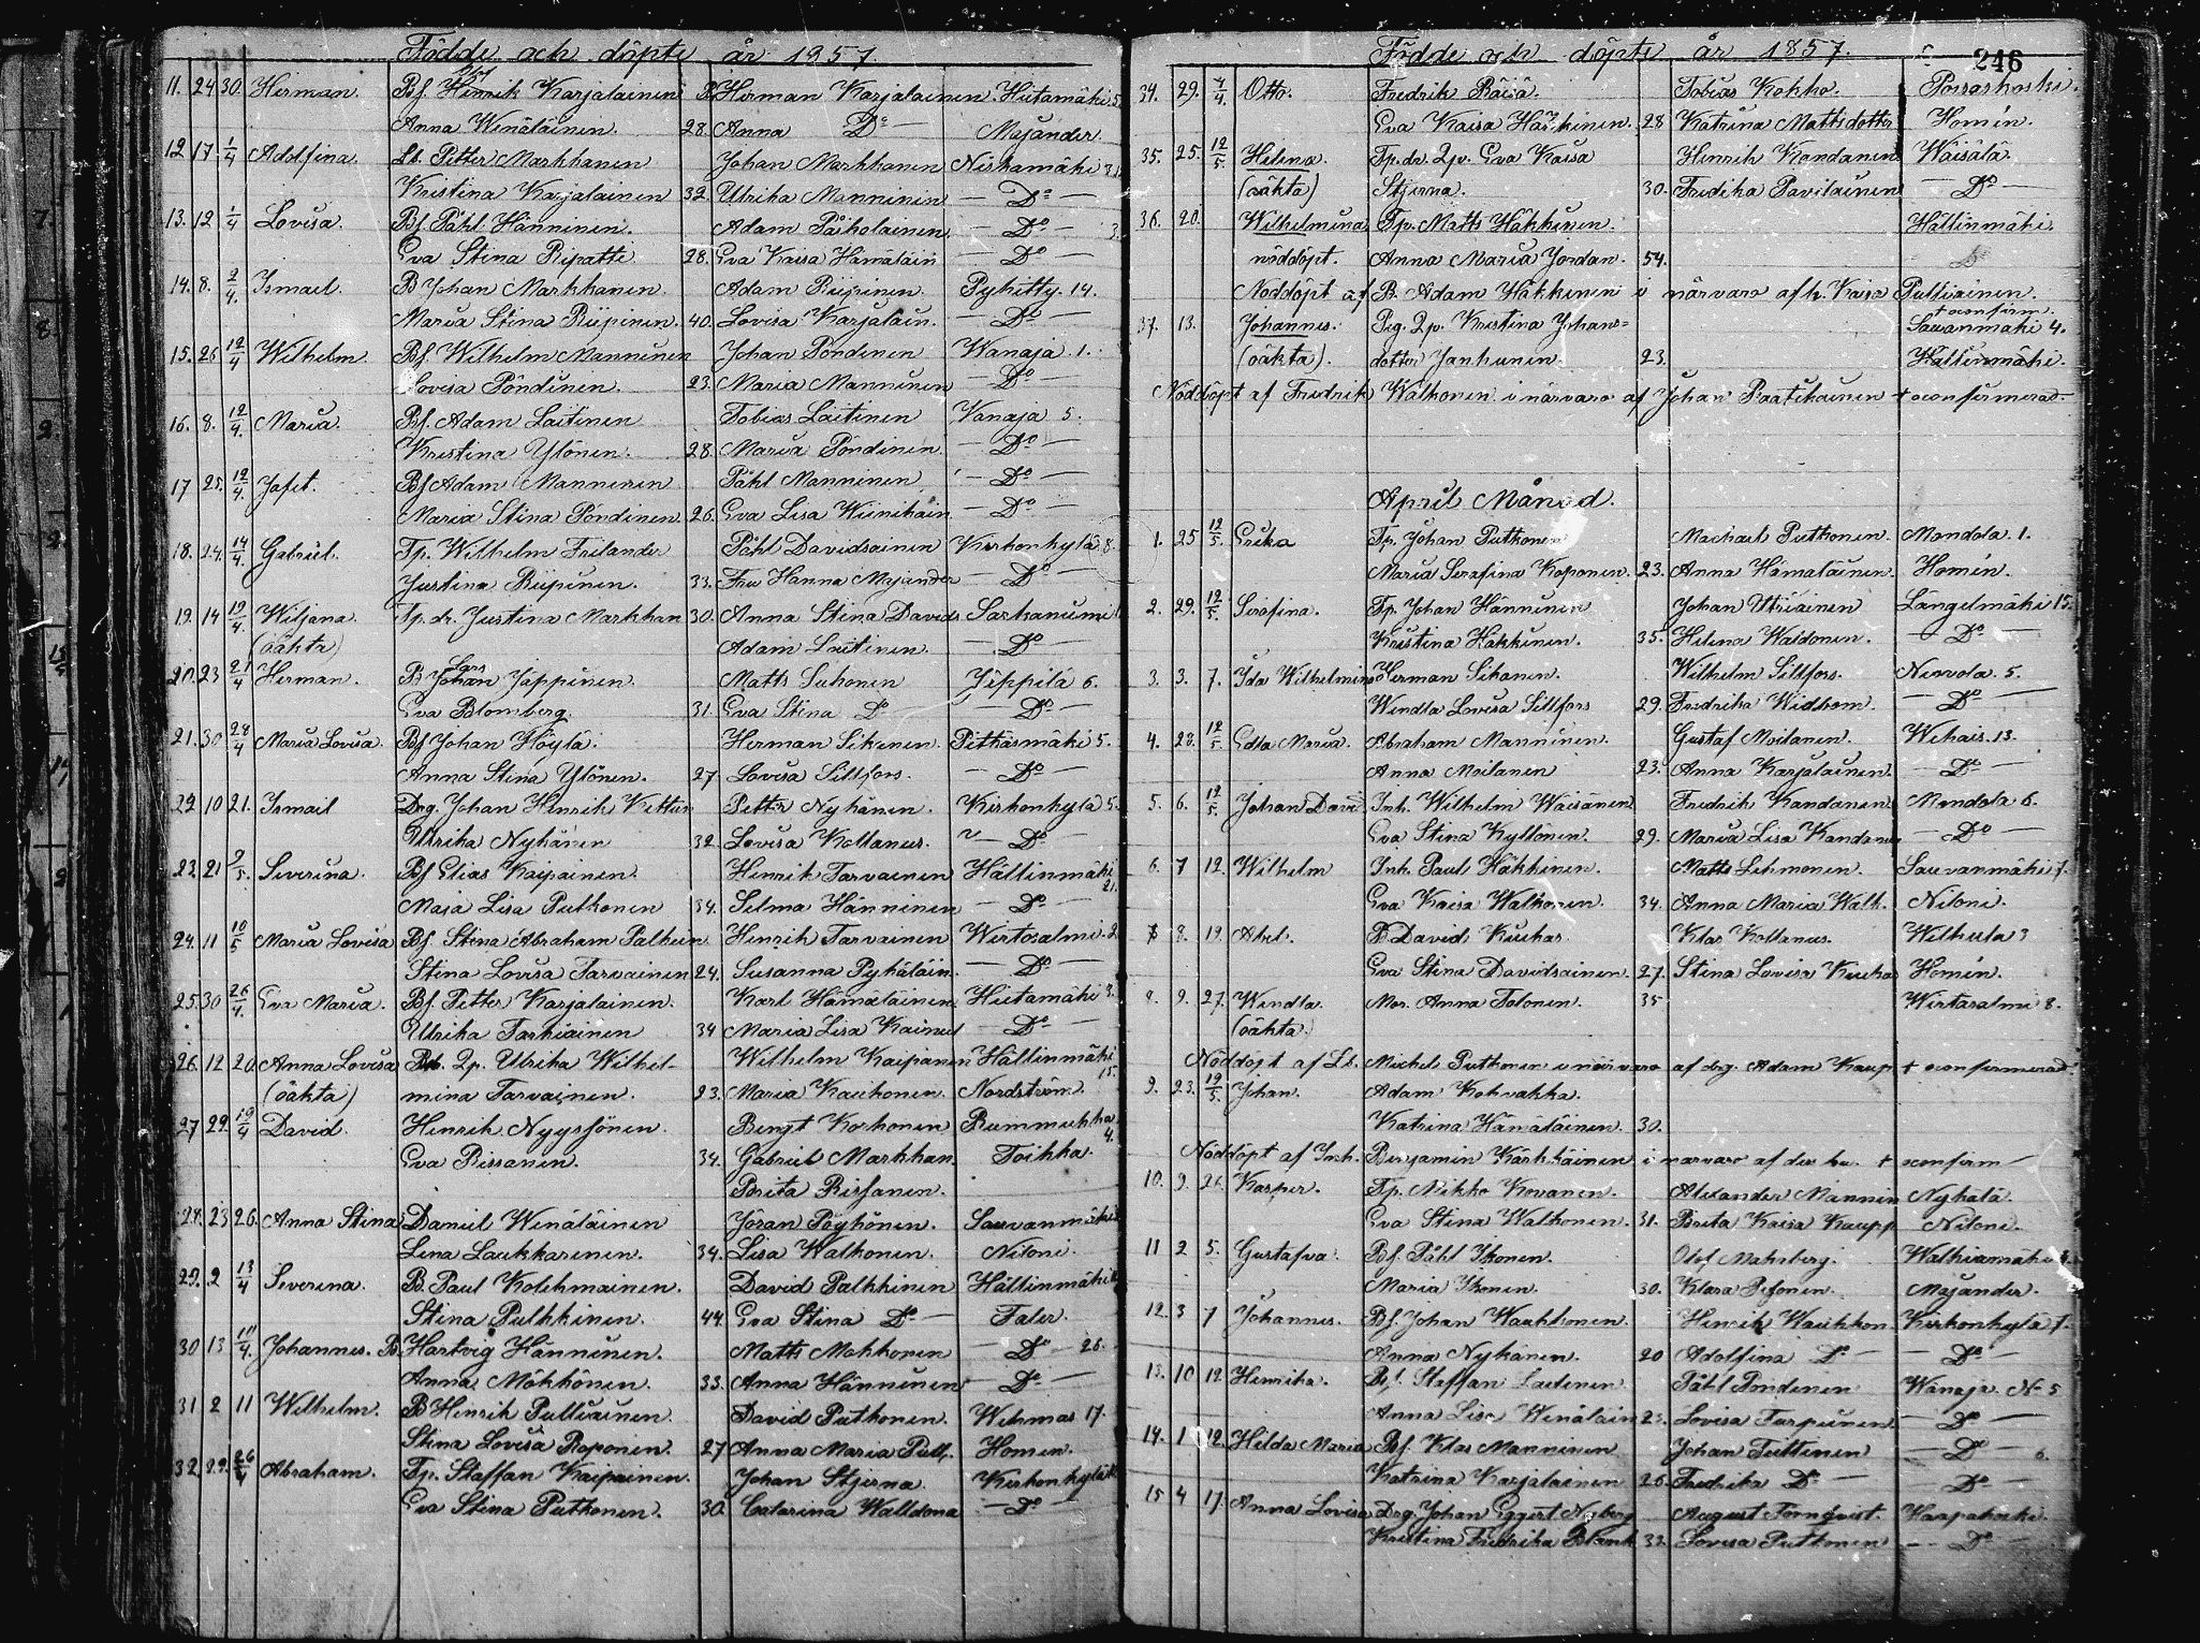 Födde och döpte år 1857.
11. 24 30. Herman. Bf. Henrik Karjalainen Herman Karjalainen Hiitamäki 5
Anna Winäläinen. 28. Anna Do Majander.
12 17 1/4 Adolfina. Ls. Petter Markkanen Johan Markkanen Niskamäki
Kristina Karjalainen 32. Ulrika Manninen Do
13. 12 1/4 Lovisa. Bf. Påhl Hänninen. Adam Do
Eva Stina Ripatti 28. Eva Kaisa Hämäläin Do
14. 8. 2/4. Ismael. B Johan Markkanen. Adam Piipinen. Pyhitty. 14.
Maria Stina Piipinen. 40. Lovisa Karjalain. Do
15. 26 12/4 Wilhelm. Bf. Wilhelm Manninen Johan Pöndinen Wanaja. 1.
Lovisa Pöndinen. 23. Maria Manninen Do
16. 8. 12/4. Maria. Bf. Adam Laitinen Tobias Laitinen Vanaja 5.
Kristina Ylönen. 28. Maria Pöndinen. Do
17 25. 12/4. Jafet. Bf Adam Manninen Påhl Manninen Do
Maria Stina Pöndinen. 26. Eva Lisa Wiinikain Do
18. 24. 14/4. Gabriel. Tp. Wilhelm Frilander Påhl Davidsainen Kirkonkylä 8.
Justina Piipinen. 33. Fru Hanna Majander Do
19. 14 19/4. Wiljana. Tp. dr. Justina Markkan 30. Anna Stina Davids Sarkanumi
(oäkta) Adam Laitinen. Do
20. 23 21/4 Herman. B Lars Johan Jäppinen. Matts Suhonen Jäppilä 6.
Eva Blomberg. 31. Eva Stina Do Do
21. 30 28/4 Maria Lovisa. Bf Johan Höylä. Herman Sikanen. Pitkäsmäki 5.
Anna Stina Ylönen. 27 Lovisa Sillfors. Do
22 10 21. Ismail Drg. Johan Henrik Petter Nykänen. Kirkonkylä 5.
Ulrika Nykänen 32. Lovisa Kollanus. Do
23. 21 2/5. Severina. Bf Elias Kaipainen. Henrik Tarvainen Hällinmäki 21.
Maja Lisa Putkonen 34. Selma Hänninen Do
24. 11 10/5 Maria Lovisa Bf. Stina Abraham Palkein Henrik Tarvainen Wirtasalmi. 2
Stina Lovisa Tarvainen 24. Susanna Pyhäläin. Do
25 30 26/4. Eva Maria. Bf. Petter Karjalainen. Karl Hämäläinen. Hiitamäki 3.
Ulrika Tarkiainen 34 Maria Lisa Do
26. 12 20. Anna Lovisa Qp. Ulrika Wilhel- Wilhelm Kaipanen Hällinmäki 15.
(oäkta) mina Tarvainen. 23. Maria Kaukonen. Nordström.
27 29. 19/4 David. Henrik Nyyssönen. Bengt Korhonen Rummukka 4.
Eva Rissanen. 34. Gabriel Markkan. Toikka.
Brita Rissanen.
28. 23 26. Anna Stina Daniel Winäläinen Jöran Pöyhönen. Sauvanmäki
Lena Laukkarinen. 34. Lisa Walkonen. Niloni.
29. 2 13/4 Severina. B. Paul Kolehmainen. David Pulkkinen Hällinmäki
Stina Pulkkinen. 44. Eva Stina Do Faler.
30 13 14/4. Johannes. B. Hartvig Hänninen. Matts Mokkonen Do 26.
Anna Mökkönen. 33. Anna Hänninen Do
31 2 11 Wilhelm. B Henrik Pulliainen. David Putkonen. Wehmas 17.
Stina Lovisa Raponen. 27 Anna Maria Pull. Homen.
32. 22. 26/4 Abraham. Tp. Staffan Kaipainen. Johan Stjerna. Kirkonkylä
Eva Stina Putkonen. 30. Catarina Walldona Do
Födde och döpte år 1857. 246
34. 29. 4/4. Otto. Fredrik Räisä. Tobias Kokko. Porsaskoski.
Eva Kaisa Häkkinen. 28 Katrina Mattsdotter Homén.
35. 25. 12/5. Helena. Tp. dr. Qp. Eva Kaisa Henrik Kandanen Wäisälä.
(oäkta) Stjerna. 30. Fredika Pavilainen Do
36. 20. Wilhelmina Tp. Matts Häkkinen. Hällinmäki.
nöddöpt. Anna Maria Jordan. 54. Do
Nöddöpt af B. Adam Häkkinen i närvaro af h. Kaisa Pulliainen.
+ oconfirm.
37. 13. Johannes. Pig. Qp. Kristina Johans= Sauanmäki 4.
(oäkta). dotter Janhunen. 23. Hällinmäki.
Nöddöpt af Fredrik Walkonen i närvaro af Johan Raatikainen + oconfirmerad.
April Månad.
1. 25 12/5. Erika Tp. Johan Putkonen Machael Putkonen. Mondola. 1.
Maria Serafina Koponen. 23. Anna Hämäläinen. Homén.
2. 29. 12/5. Serafina. Tp. Johan Hänninen Johan Utriainen Längelmäki 15.
Kristina Häkkinen. 35. Helena Waldonen. Do
3. 3. 7. Ida Wilhelmina Herman Sikanen. Wilhelm Sillfors. Nervola. 5.
Wendla Lovisa Sillfors 29. Fredrika Widbom. Do
4. 28. 12/5. Edla Maria. Abraham Manninen. Gustaf Moilanen. Wehais. 13.
Anna Moilanen 23. Anna Karjalainen. Do
5. 6. 12/5. Johan David. Inh. Wilhelm Wäisänen Fredrik Kandanen Mondola 6.
Eva Stina Kyllönen. 29. Maria Lisa Kandanen Do
6. 7 12. Wilhelm Inh. Paul Häkkinen. Matts Lehmonen. Sauvanmäki 7.
Eva Kaisa Walkonen. 34. Anna Maria Walk. Niloni.
7 8. 19. Abel. B. David Kuukas. Klas Kollanus. Wilhula 3
Eva Stina Davidsainen. 27. Stina Lovisa Kuukas Homén.
8. 9. 27. Wendla. Mor. Anna Tolonen. 35 Wirtasalmi 8.
(oäkta)
Nöddöpt af Ls. Michel Putkonen i närvaro af drg. Adam Kaup + oconfirmerad.
9. 23. 12/5. Johan. Adam Kokvakka.
Katrina Hämäläinen. 30.
Nöddöpt af Inh. Benjamin Kärkkäinen i narvaro af + oconfirm
10. 9. 26. Kasper. Tp. Mikko Kovanen. Alexander Mannin Nykälä.
Eva Stina Walkonen. 31. Brita Kaisa Kaupp Niloni.
11 2 5. Gustafva. Bf. Påhl Ikonen. Olof Malmberg. Walkiamäki
Maria Ikonen. 30. Klara Majander.
12. 3 7 Johannes. Bf. Johan Waukkonen. Henrik Waukkon. Kirkonkylä 7.
Anna Nykänen. 20 Adolfina Do Do
13. 10 12. Henrika. Bf. Staffan Laitinen Påhl Pöndinen Wanaja. No 5
Anna Lisa Winäläin Lovisa Do
14. 1 12. Hilda Maria Bf. Klas Manninen Johan Tuttunen Do 6.
Katrina Karjalainen 26. Fredrika Do Do
15 4 17. Anna Lovisa Drg. Johan Eggert August Törnqvist. Haapakoski.
Kristina Fredrika Blank 32. Lovisa Puttonen Do